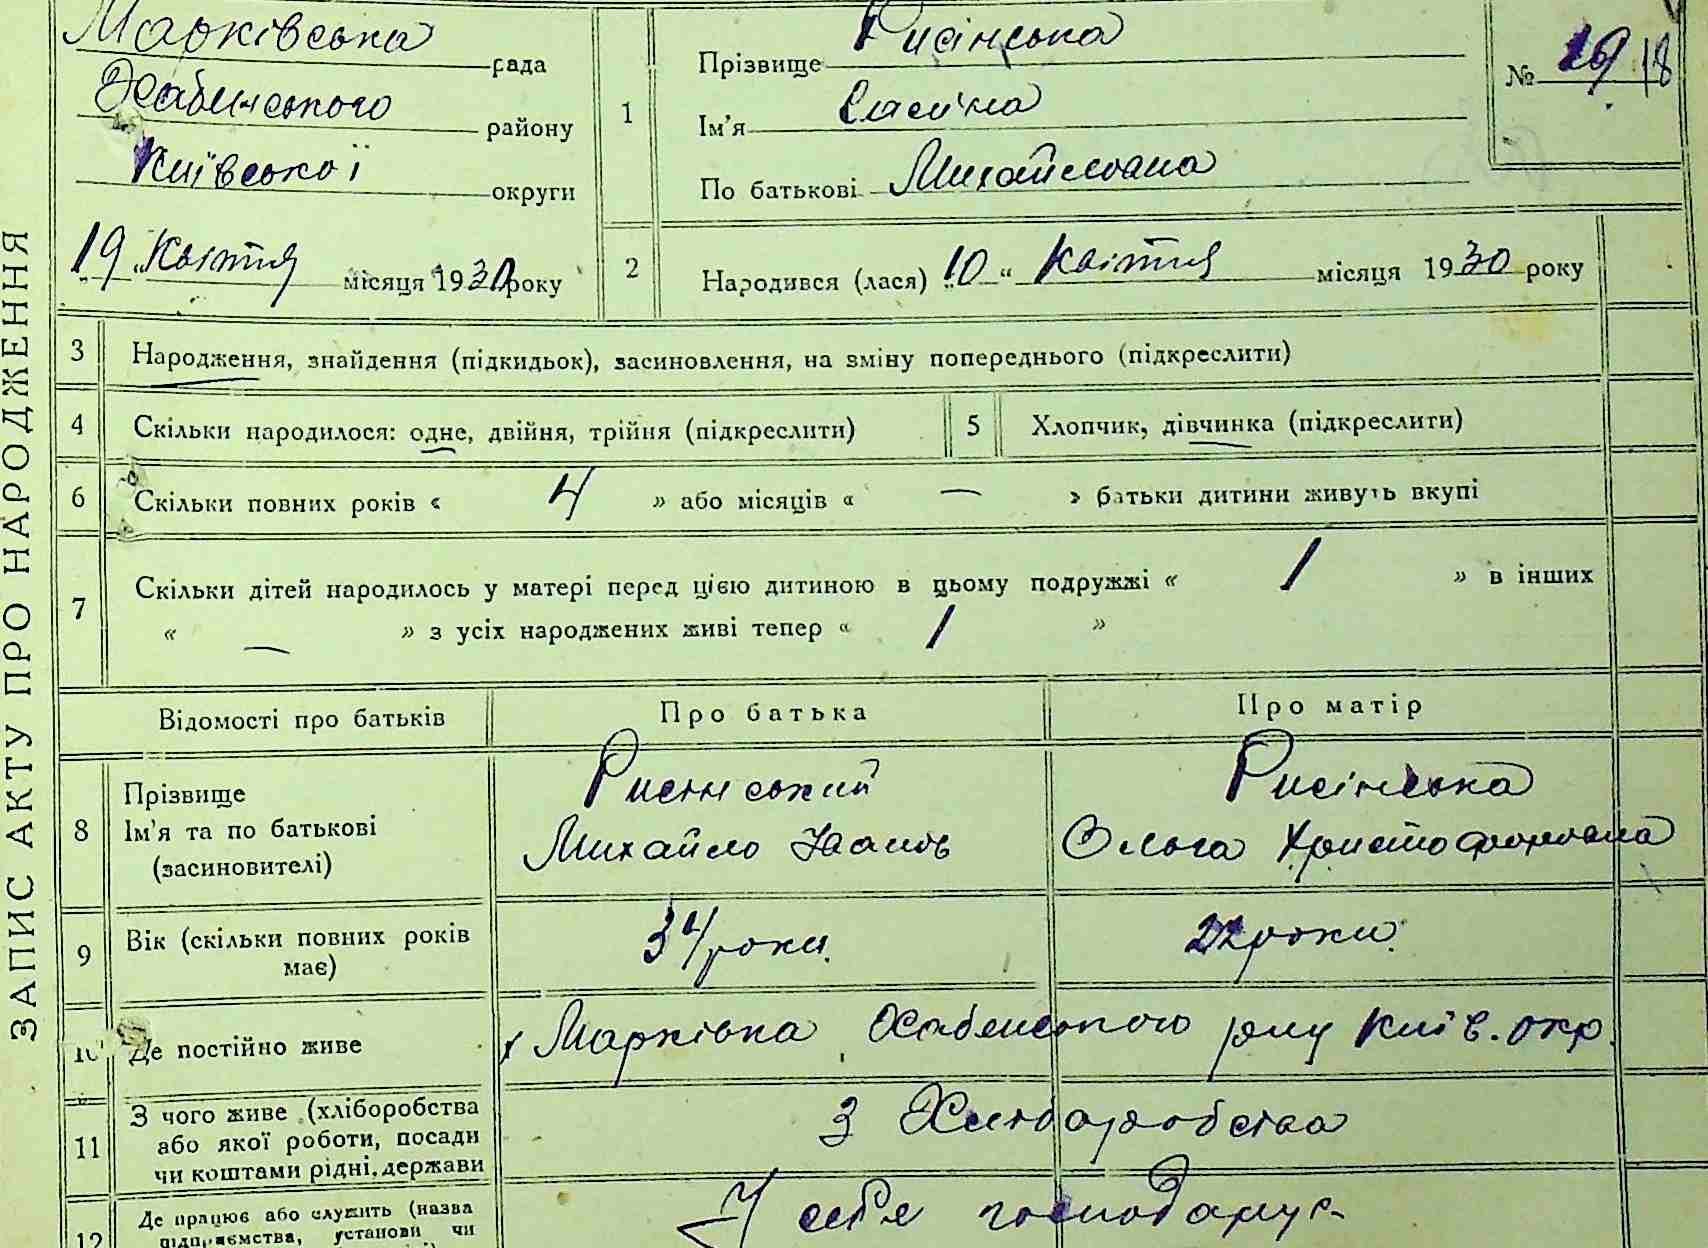 ЗАПИС АКТУ ПРО НАРОДЖЕННЯ
Марківська рада
району
Київської округи
„19„ Квітня місяця 1930 року
1
Прізвище Рисінська
Ім'я
По батькові Михайловна
№ 18
2
Народився (лася) „10“ Квітня місяця 1930 року
3
Народження, знайдення (підкидьок), засиновлення, на зміну попереднього (підкреслити)
4
Скільки народилося: одне, двійня, трійня (підкреслити)
5
Хлопчик, дівчинка (підкреслити)
6
Скільки повних років « 4 » або місяців « — » батьки дитини живуть вкупі
7
Скільки дітей народилось у матері перед цією дитиною в цьому подружжі « 1 » в інших
« — » з усіх народжених живі тепер « 1 »
Відомості про батьків
Про батька
Про матір
8
Прізвище
Ім'я та по батькові
(засиновителі)
Рисінський
Михайло Іванов
Рисінська
Ольга Христофоровна
9
Вік (скільки повних років
має)
34 роки.
22 роки.
10
Де постійно живе
Марківка р-ну Київ. окр.
11
З чого живе (хліборобства
або якої роботи, посади
чи коштами рідні, держави
З Хліборобства
12
Де працює або служить (назва
підприємства, установи чи
У себе господарує